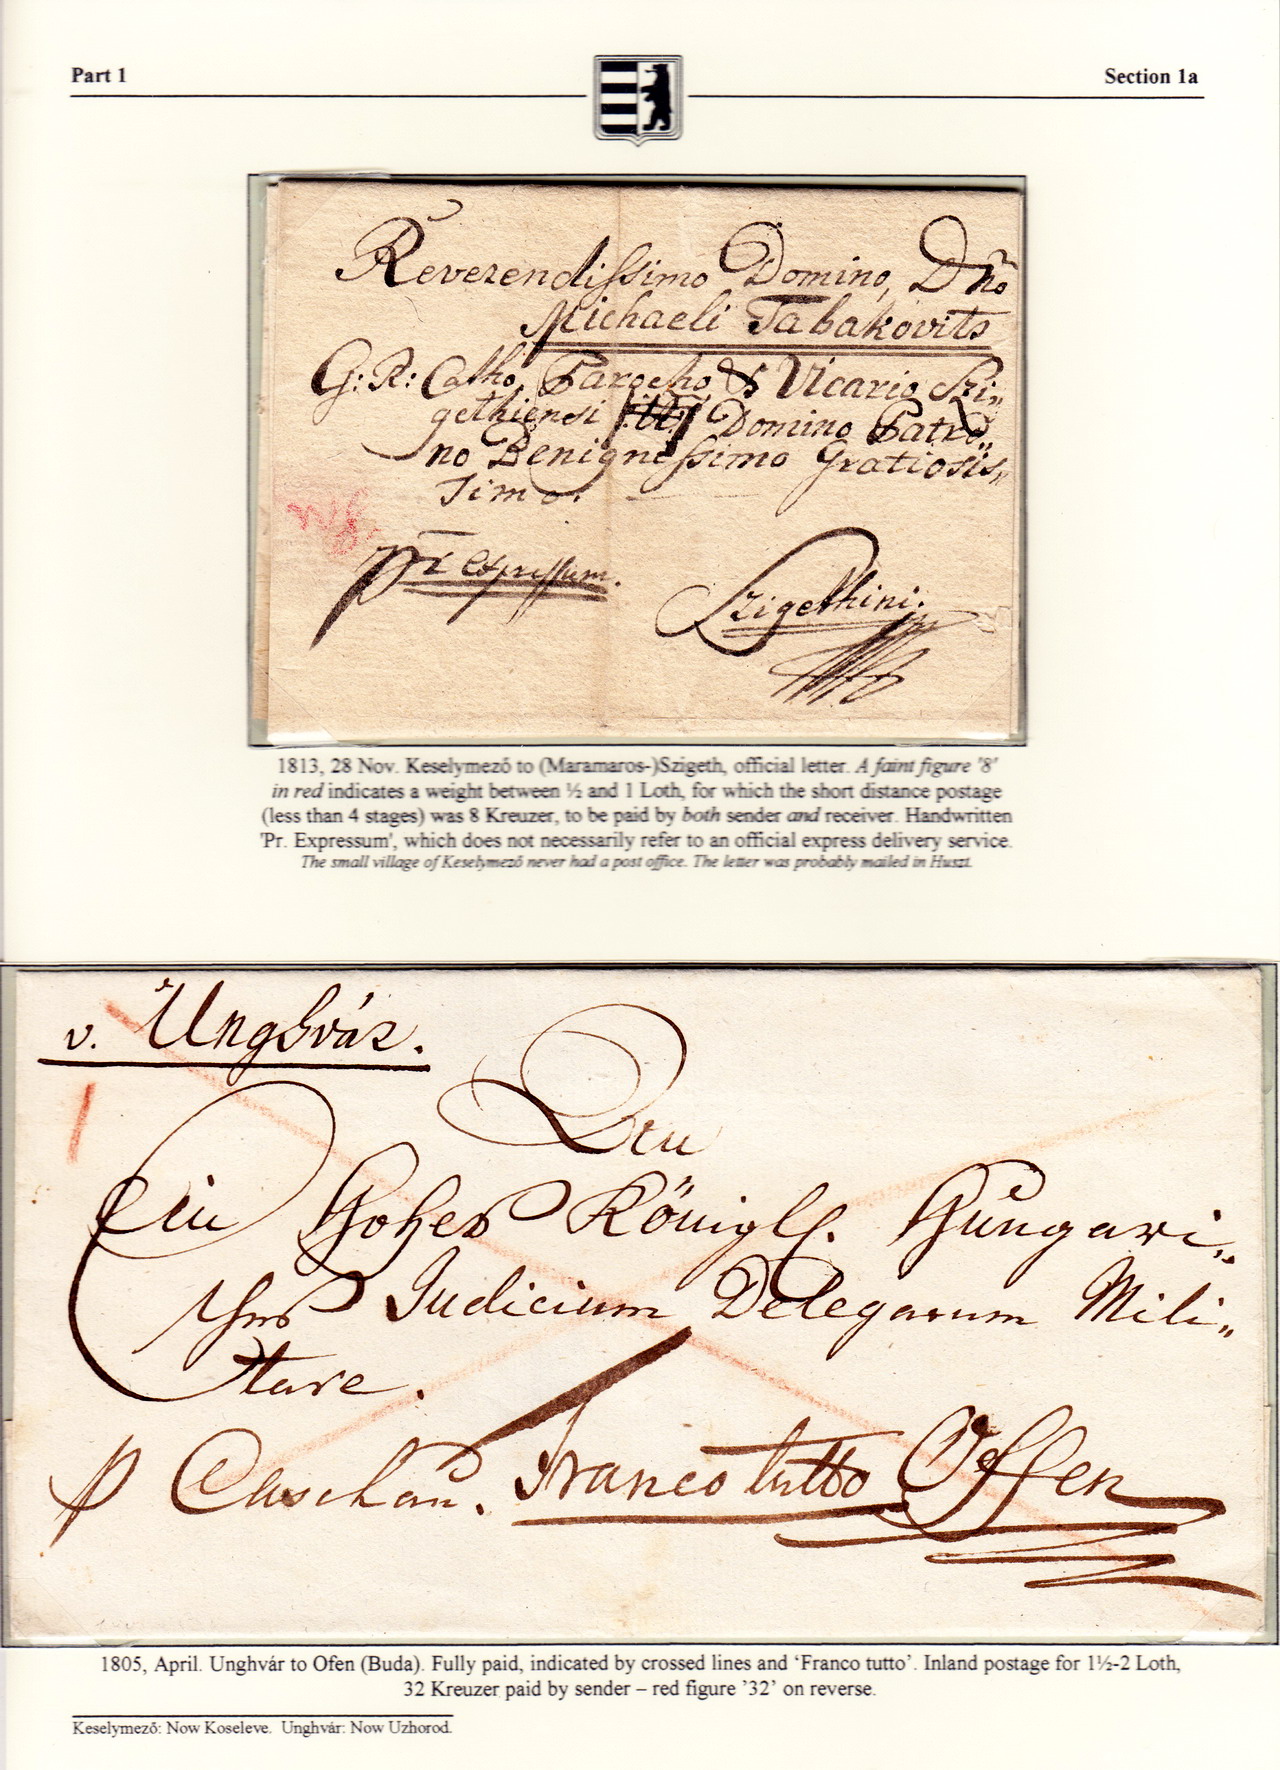 Part 1
Section 1a
Reverendissimo Domino, Dño
Michaeli Tabakovits
G: R: Catho, Parocho & Vicario Szi„
gethiensi Domino Patro„
no Benignissimo Gratiosis„
simo.
pr expressum.
Szigethini.
1813, 28 Nov. Keselymező to (Maramaros-)Szigeth, official letter. A faint figure '8'
in red indicates a weight between ½ and 1 Loth, for which the short distance postage
(less than 4 stages) was 8 Kreuzer, to be paid by both sender and receiver. Handwritten
'Pr. Expressum', which does not necessarily refer to an official express delivery service.
The small village of Keselymező never had a post office. The letter was probably mailed in Huszt.
v. Unghvár.
Ein Hohes Königl. Hungari„
sches Judicium Delegatum Mili„
tare.
p Caschau. Franco tutto Offen
1805, April. Unghvár to Ofen (Buda). Fully paid, indicated by crossed lines and ‘Franco tutto’. Inland postage for 1½-2 Loth,
32 Kreuzer paid by sender – red figure ’32’ on reverse.
Keselymező: Now Koseleve. Unghvár: Now Uzhorod.